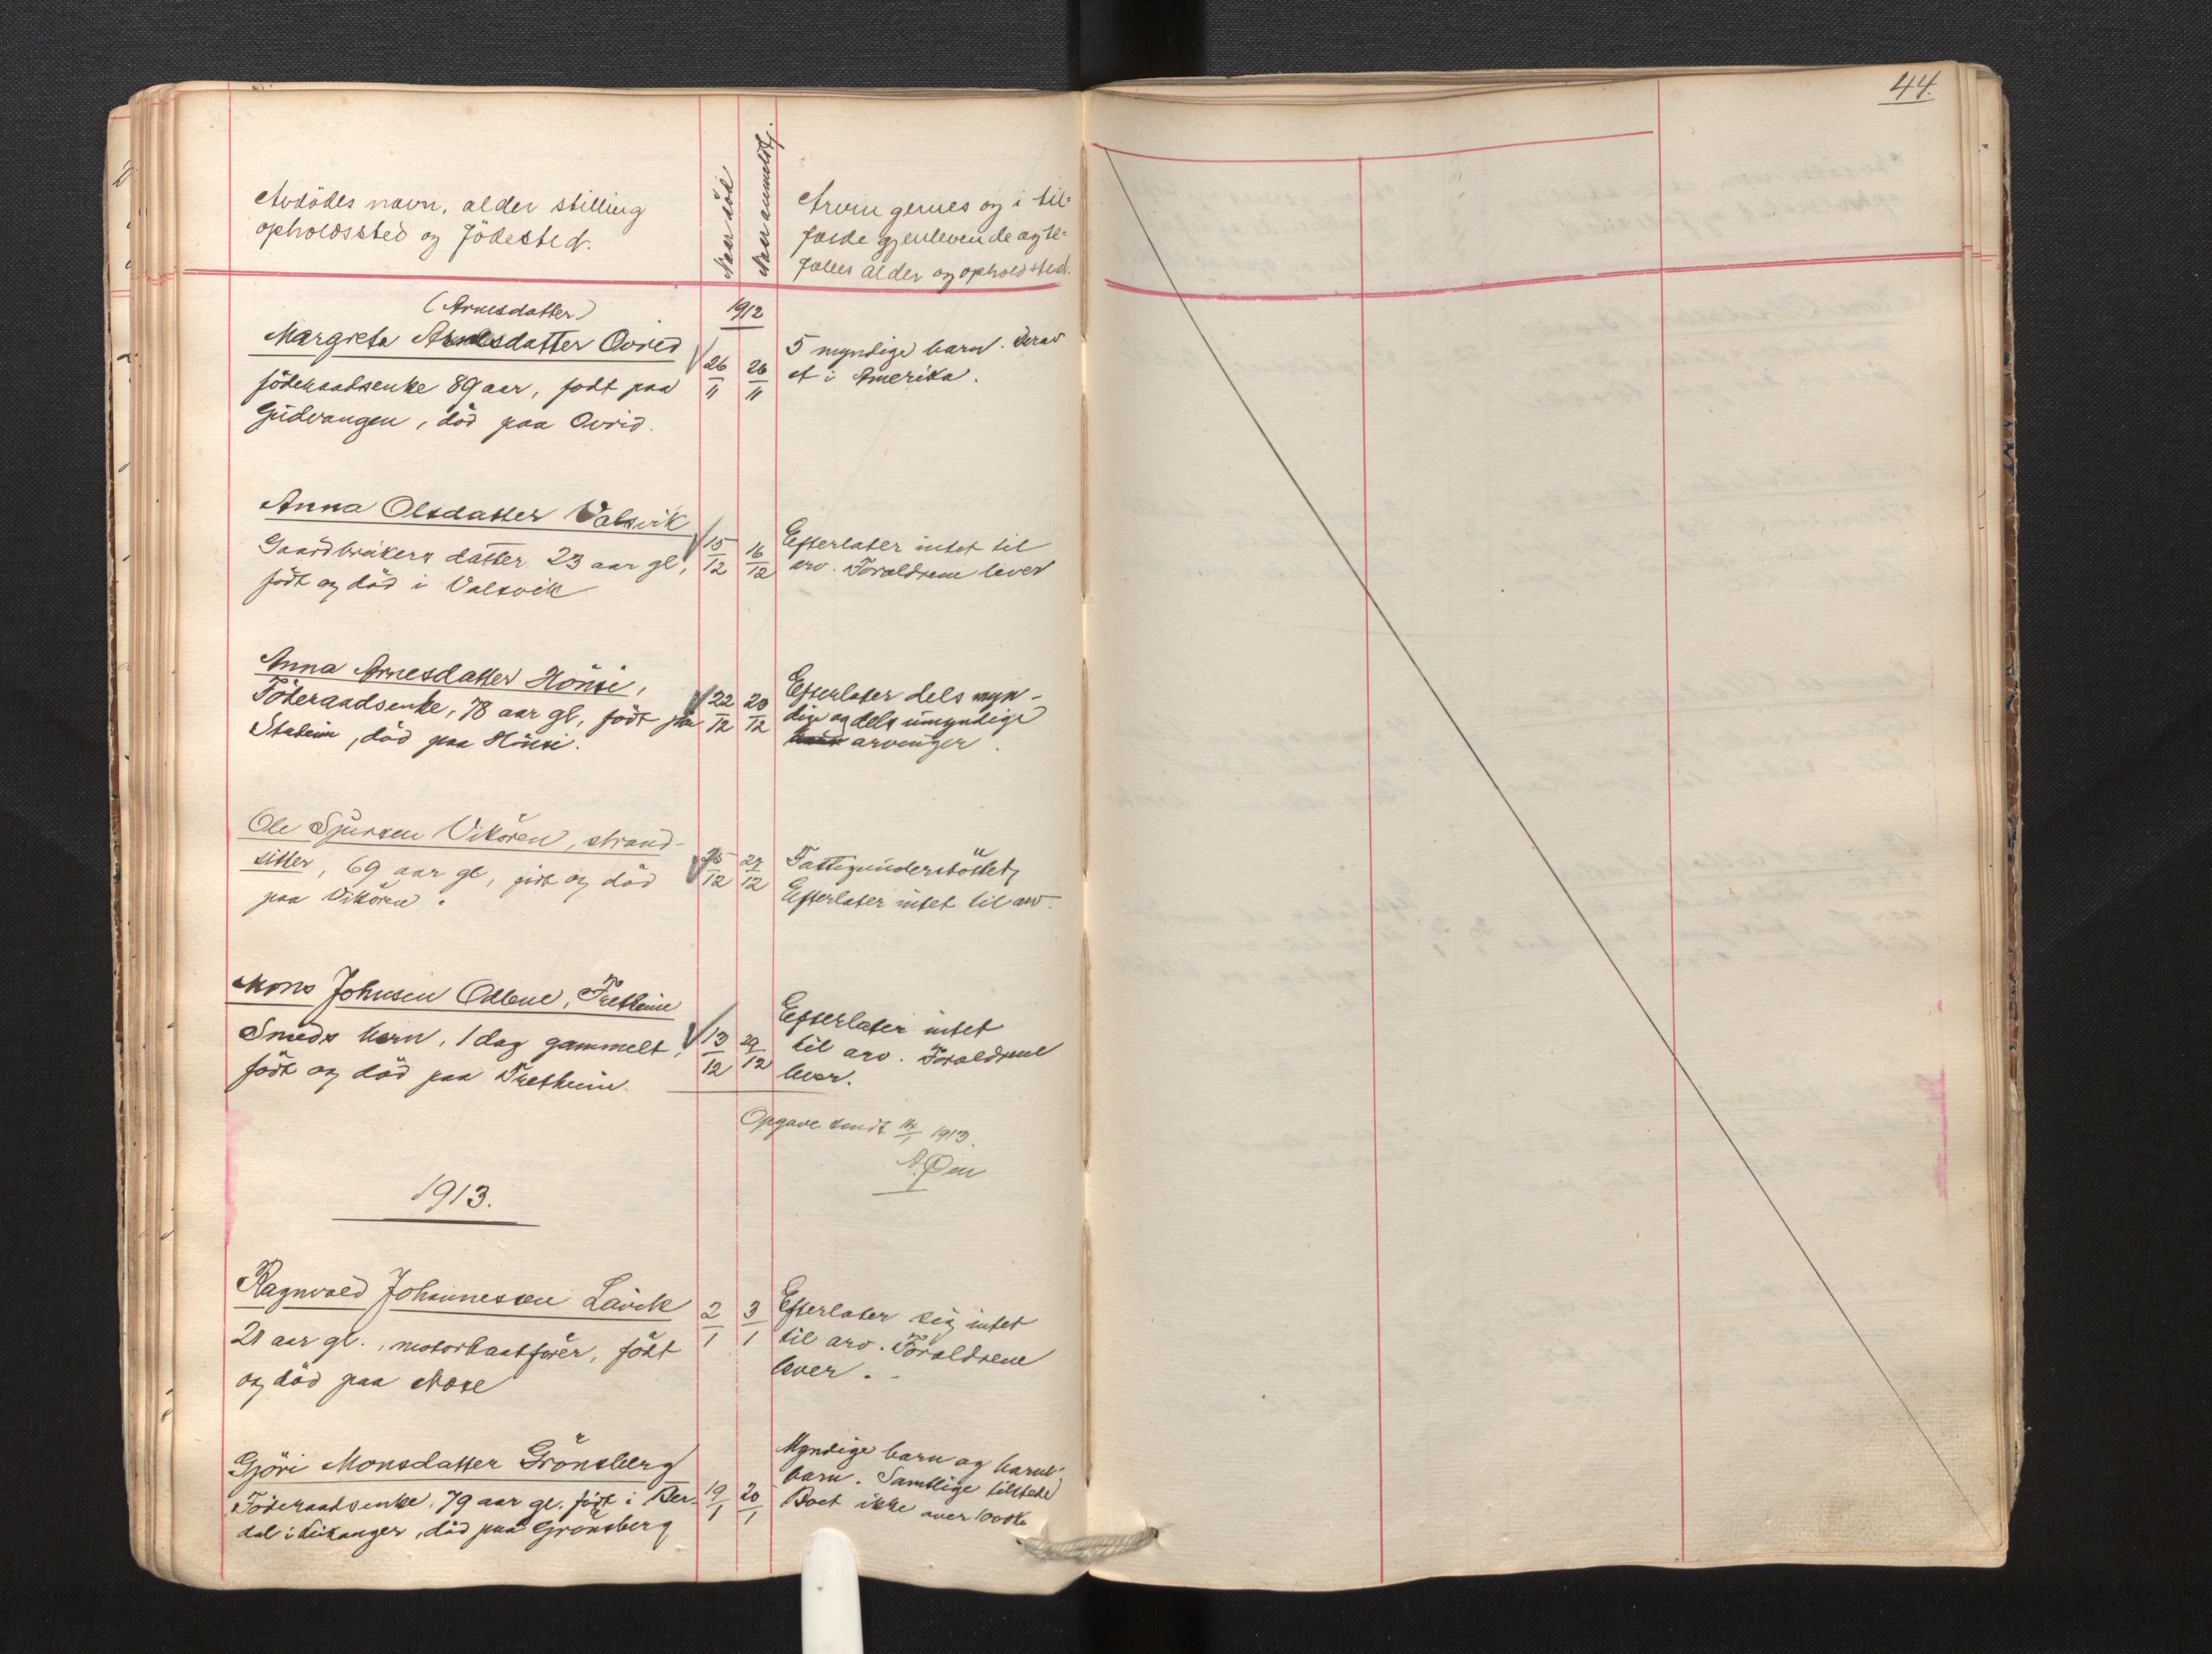 44.
Avdödes navn, alder stilling
opholdssted og födested.
Naar död
Naar anmeldt
Arvingernes og i til-
fælde gjenlevende ægte-
fælles alder og opholdsted.
1912
(Arnesdatter)
Margreta Arnesdatter Ovrid
föderaadsenke 89 aar, födt paa
Gudvangen, död paa Ovrid.
26/11 26/11
5 myndige barn. Derav
et i Amerika.
Anna Olsdatter Valsvik
Gaardbrukers datter 23 aar gl,
födt og död i Valsvik
15/12 16/12
Efterlater intet til
arv. Foraldrene lever
Anna Arnesdatter Hönsi,
Föderaadsenke, 78 aar gl, födt paa
Stadeim, död paa Hönsi.
22/12 20/12
Efterlater dels myn-
dige og dels umyndige
arvinger.
Ole Sjursen Vikören, strand-
sitter, 69 aar gl, gift og död
paa Vikören.
25/12 27/12
Fattigunderstöttet,
Efterlater intet til arv.
Mons Johnsen Odlene, Fretheim
Smeds barn, 1 dag gammelt,
födt og död paa Fretheim.
13/12 29/12
Efterlater intet
til arv. Foraldrene
lever.
Opgave sendt 14/1 1913.
A. Øen
1913.
Ragnvald Johannessen Lavik
21 aar gl., motorbaatförer, födt
og död paa Nose
2/1 3/1
Efterlater sig intet
til arv. Foraldrene
lever.
Gjöri Monsdatter Grönsberg
Föderaadsenke, 79 aar gl. födt i Ber-
dal i Leikanger, död paa Grönsberg
19/1 20/1
Myndige barn og barne-
barn. Samtlige tilstede
Boet ikke over 1000 Kr